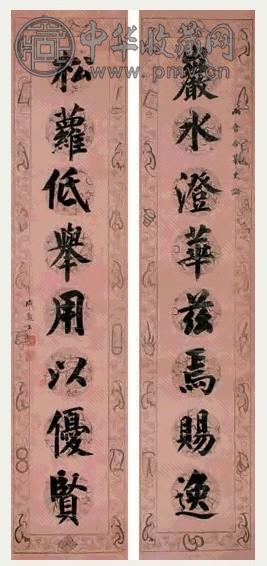 中华收藏网
www.pmv.cn
巖水澄華茲焉賜逸
松蘿低舉用以優賢
成親王